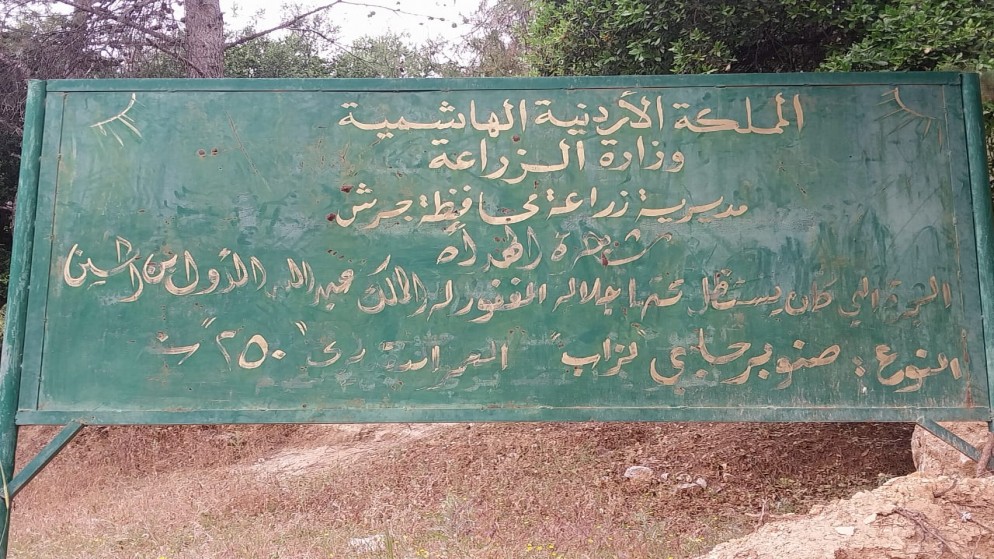 المملكة الأردنية الهاشمية
وزارة الزراعة
مديرية زراعة محافظة جرش
شجرة الهدأه
الشجرة التي كان يستظل تحتها جلالة المغفور له الملك عبد الله الأول ابن الحسين
النوع : صنوبر حلبي "لزاب" العمر "٢٥٠"